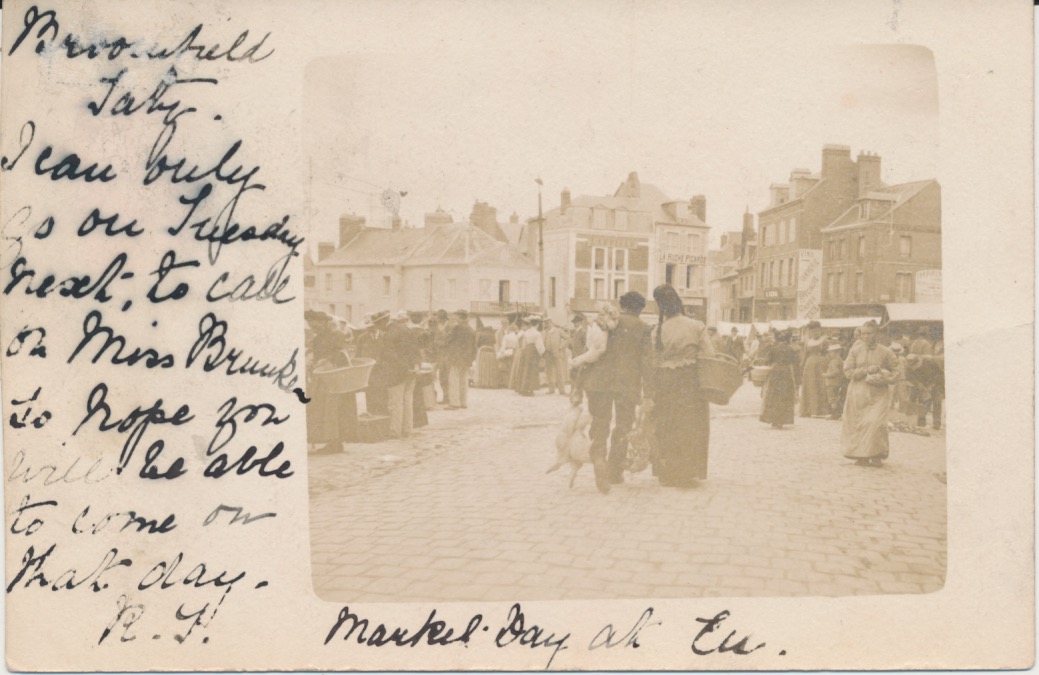 Broomfield
Saty.
I can only
go on Tuesday
next, to call
on Miss
so hope you
will be able
to come on
that day.
Market Day at Eu.
LA RUCHE PICARDE